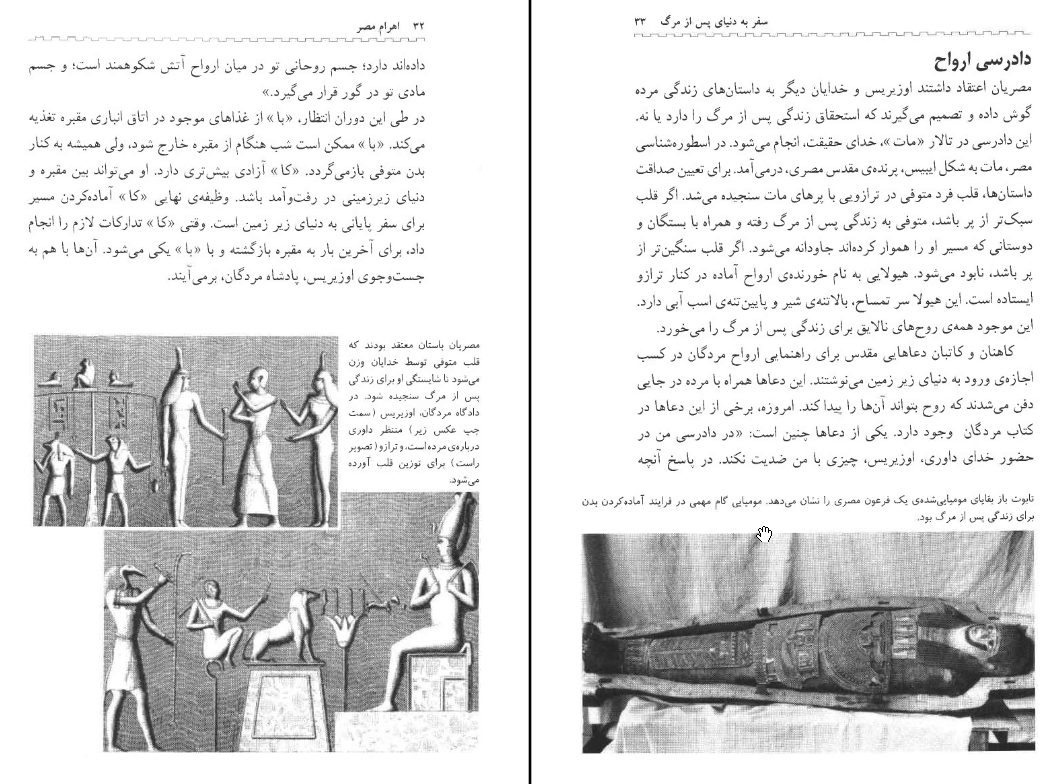 ۳۲ اهرام مصر
داده‌اند دارد؛ جسم روحانی تو در میان ارواح آتش شکوهمند است؛ و جسم
مادی تو در گور قرار می‌گیرد.»
در طی این دوران انتظار، «با» از غذاهای موجود در اتاق انباری مقبره تغذیه
می‌کند. «با» ممکن است شب هنگام از مقبره خارج شود، ولی همیشه به کنار
بدن متوفی بازمی‌گردد. «کا» آزادی بیش‌تری دارد. او می‌تواند بین مقبره و
دنیای زیرزمینی در رفت‌وآمد باشد. وظیفه‌ی نهایی «کا» آماده‌کردن مسیر
برای سفر پایانی به دنیای زیر زمین است. وقتی «کا» تدارکات لازم را انجام
داد، برای آخرین بار به مقبره بازگشته و با «با» یکی می‌شود. آن‌ها با هم به
جست‌وجوی اوزیریس، پادشاه مردگان، برمی‌آیند.
مصریان باستان معتقد بودند که
قلب متوفی توسط خدایان وزن
می‌شود تا شایستگی او برای زندگی
پس از مرگ سنجیده شود. در
دادگاه مردگان، اوزیریس (سمت
چپ عکس زیر) منتظر داوری
درباره‌ی مرده‌است، و ترازو (تصویر
راست) برای توزین قلب آورده
می‌شود.
سفر به دنیای پس از مرگ ۳۳
دادرسی ارواح
مصریان اعتقاد داشتند اوزیریس و خدایان دیگر به داستان‌های زندگی مرده
گوش داده و تصمیم می‌گیرند که استحقاق زندگی پس از مرگ را دارد یا نه.
این دادرسی در تالار «مات»، خدای حقیقت، انجام می‌شود. در اسطوره‌شناسی
مصر، مات به شکل ایبیس، پرنده‌ی مقدس مصری، درمی‌آمد. برای تعیین صداقت
داستان‌ها، قلب فرد متوفی در ترازویی با پرهای مات سنجیده می‌شد. اگر قلب
سبک‌تر از پر باشد، متوفی به زندگی پس از مرگ رفته و همراه با بستگان و
دوستانی که مسیر او را هموار کرده‌اند جاودانه می‌شود. اگر قلب سنگین‌تر از
پر باشد، نابود می‌شود. هیولایی به نام خورنده‌ی ارواح آماده در کنار ترازو
ایستاده است. این هیولا سر تمساح، بالاتنه‌ی شیر و پایین‌تنه‌ی اسب آبی دارد.
این موجود همه‌ی روح‌های نالایق برای زندگی پس از مرگ را می‌خورد.
کاهنان و کاتبان دعاهایی مقدس برای راهنمایی ارواح مردگان در کسب
اجازه‌ی ورود به دنیای زیر زمین می‌نوشتند. این دعاها همراه با مرده در جایی
دفن می‌شدند که روح بتواند آن‌ها را پیدا کند. امروزه، برخی از این دعاها در
کتاب مردگان وجود دارد. یکی از دعاها چنین است: «در دادرسی من در
حضور خدای داوری، اوزیریس، چیزی با من ضدیت نکند. در پاسخ آنچه
تابوت باز بقایای مومیایی‌شده‌ی یک فرعون مصری را نشان می‌دهد. مومیایی گام مهمی در فرایند آماده‌کردن بدن
برای زندگی پس از مرگ بود.